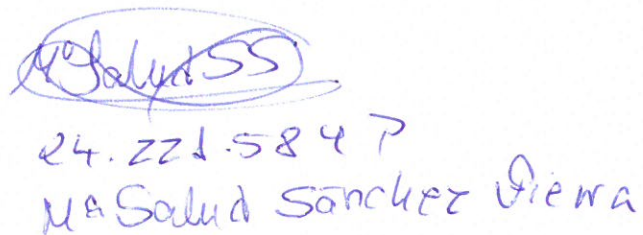 Mª Salud SS
24.221.584 P
Mª Salud Sánchez Sierra